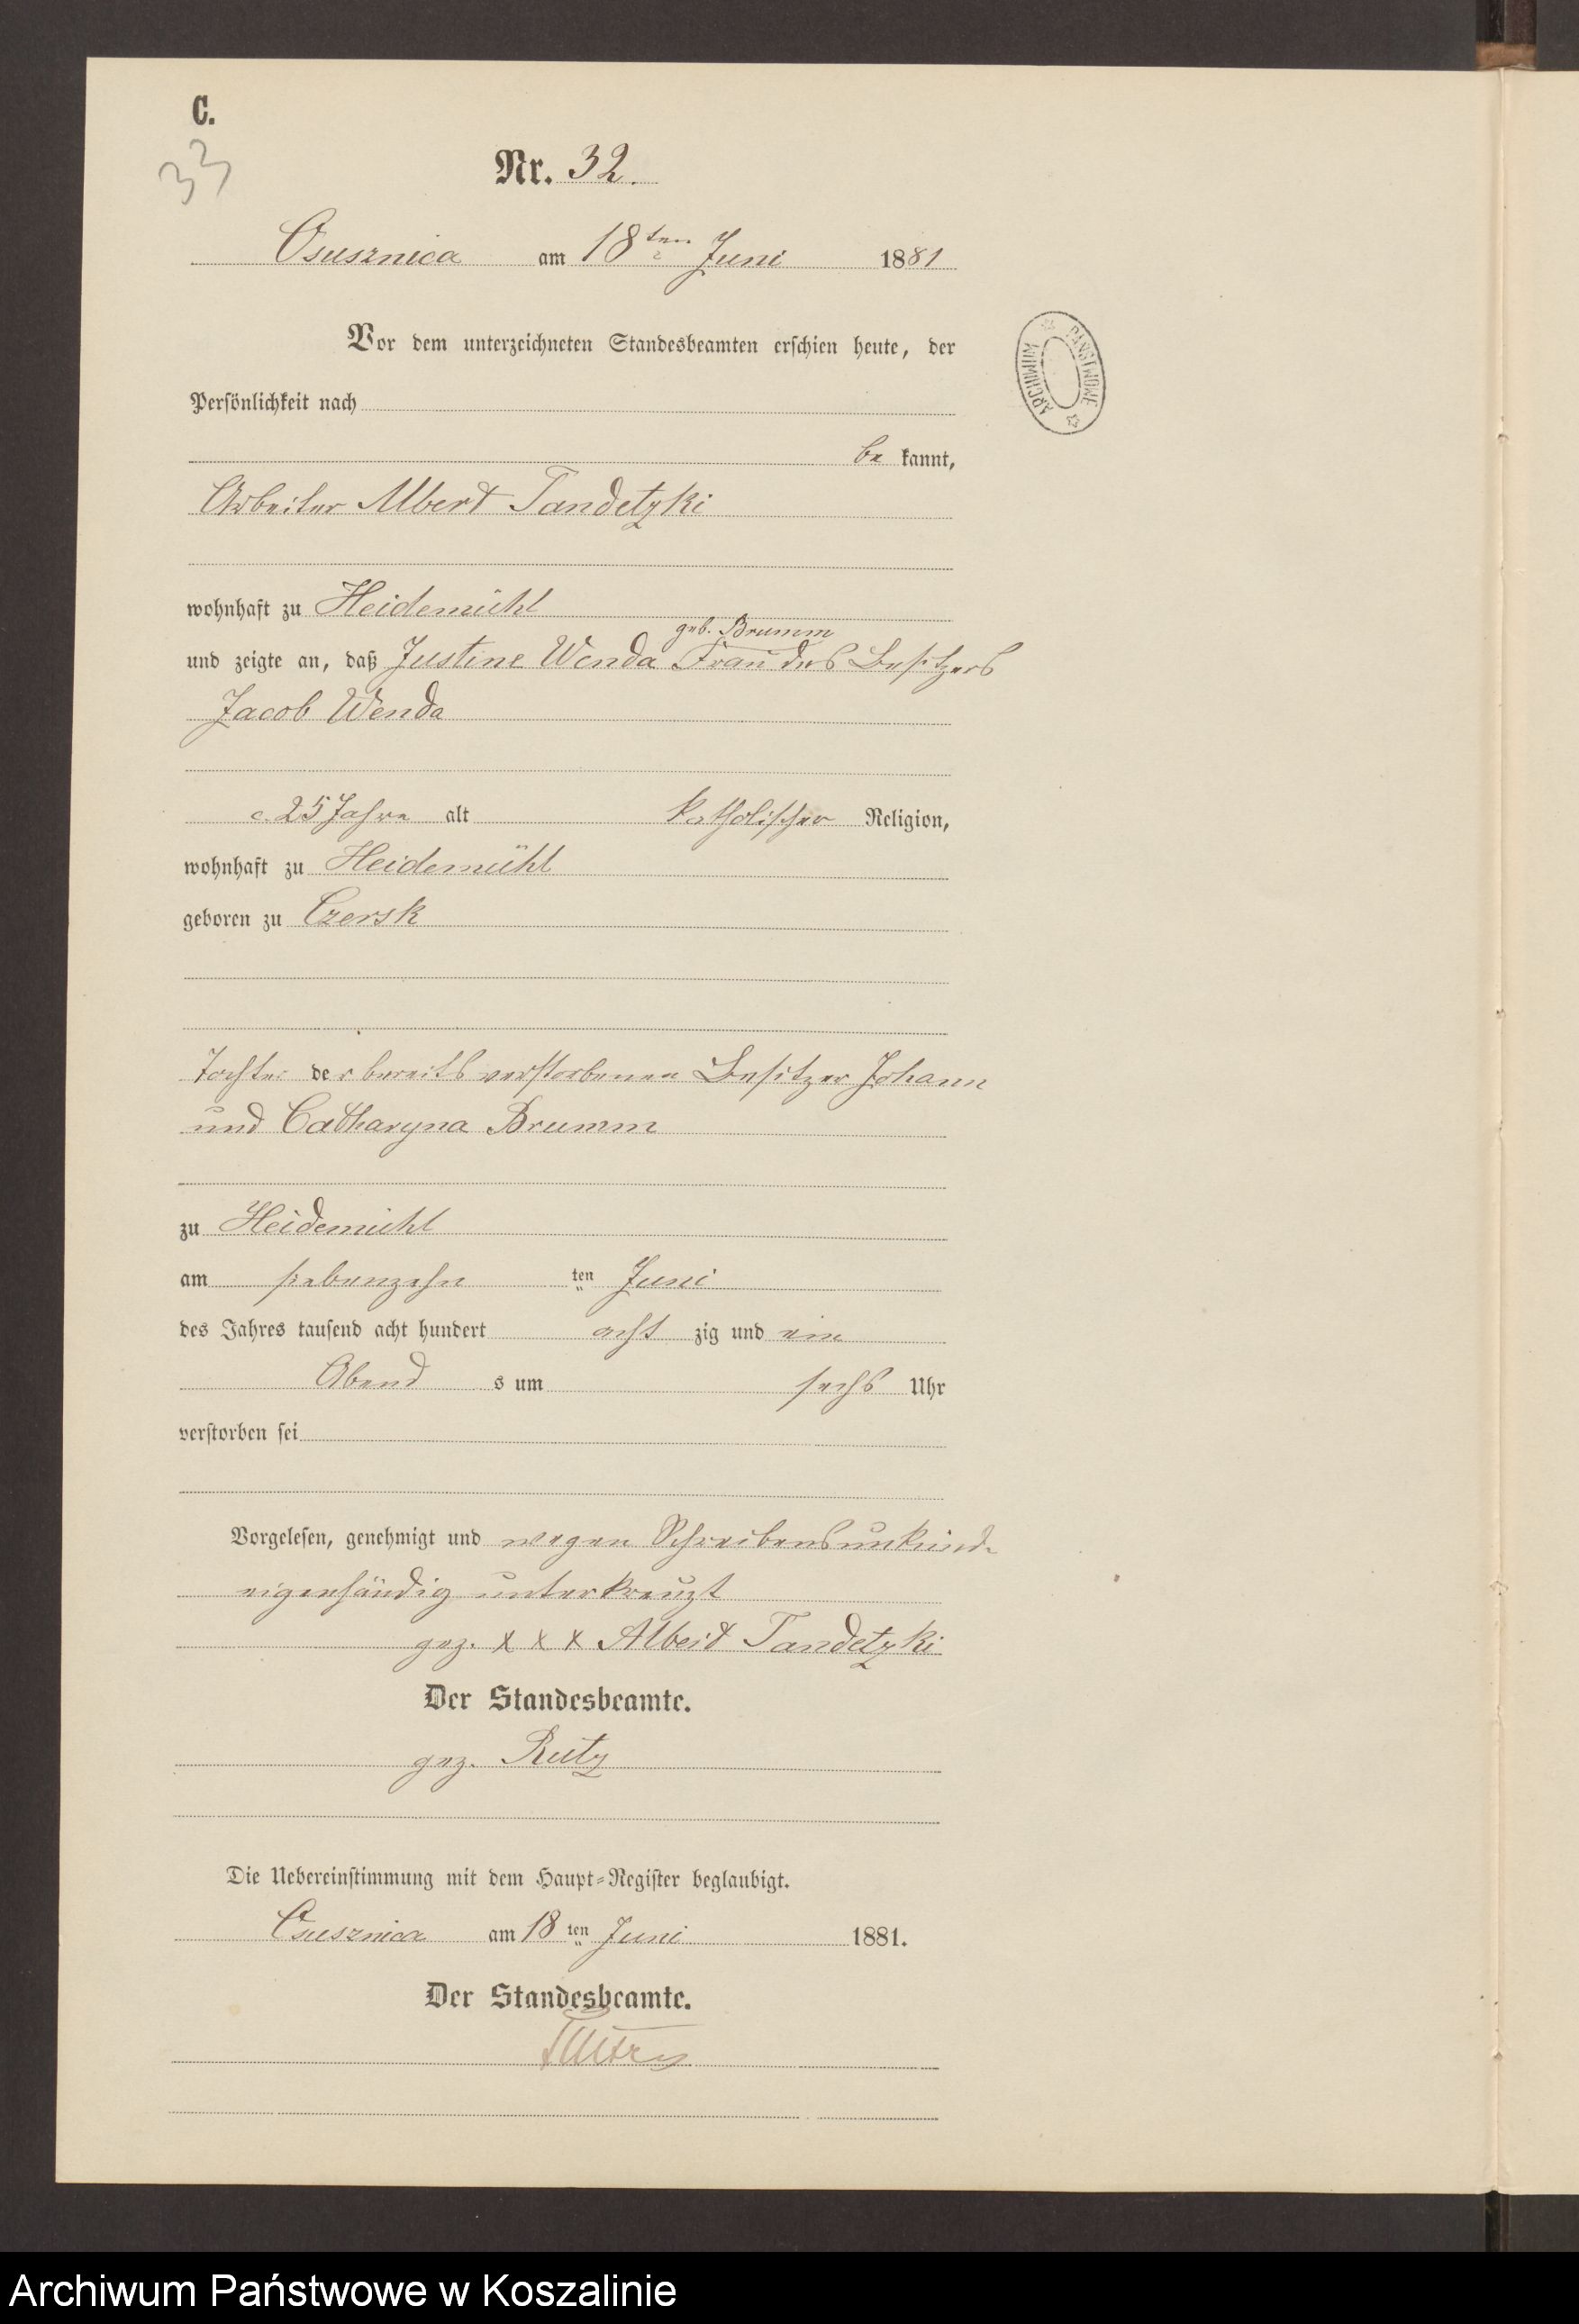 C.
33
Nr. 32.
Osusznica am 18ten Juni 1881
Vor dem unterzeichneten Standesbeamten erschien heute, der
Persönlichkeit nach
be kannt,
Arbeiter Albert Tandetzki
wohnhaft zu Heidemühl
geb. Brumm
und zeigte an, daß Justine Wenda Frau des Besitzers
Jacob Wenda
c. 25 Jahre alt katholischer Religion,
wohnhaft zu Heidemühl
geboren zu Czersk
Tochter der bereits verstorbenen Besitzer Johann
und Catharyna Brumm
zu Heidemühl
am siebenzehn ten Juni
des Jahres tausend acht hundert acht zig und ein
Abend s um sechs Uhr
verstorben sei
Vorgelesen, genehmigt und wegen Schreibensunkunde
eigenhändig unterkreuzt
gez. x x x Albert Tandetzki
Der Standesbeamte.
gez. Rutz
Die Uebereinstimmung mit dem Haupt=Register beglaubigt.
Osusznica am 18 ten Juni 1881.
Der Standesbeamte.
ARCHIWUM PAŃSTWOWE
Archiwum Państwowe w Koszalinie